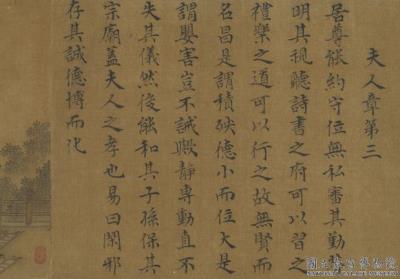 夫人章第三
居尊能約守位無私審其勤勞
明其視聽詩書之府可以習之
禮樂之道可以行之故無賢而
名昌是謂積殃德小而位大是
謂嬰害豈不誡歟靜專動直不
失其儀然後能和其子孫保其
宗廟蓋夫人之孝也易曰閑邪
存其誠德博而化